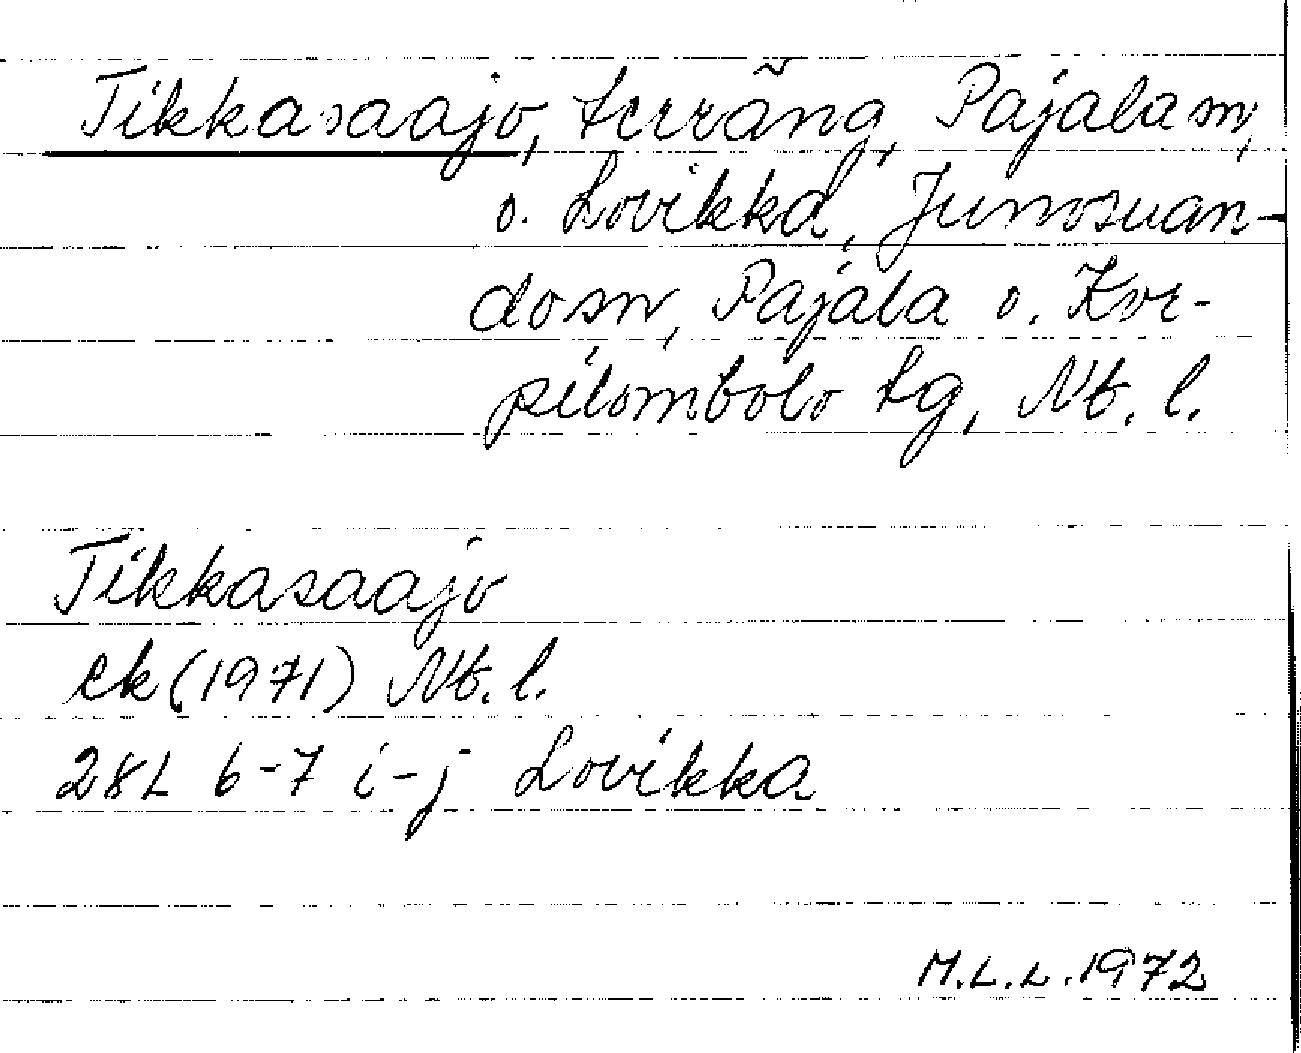 Tikkasaajo, terräng, Pajala sn,
o. Lovikka, Junosuan-
do sn, Pajala o. Kor-
pilombolo tg, Nb. l.
Tikkasaajo
ek (1971) Nb. l.
28L 6-7 i-j Lovikka
M.L.L. 1972